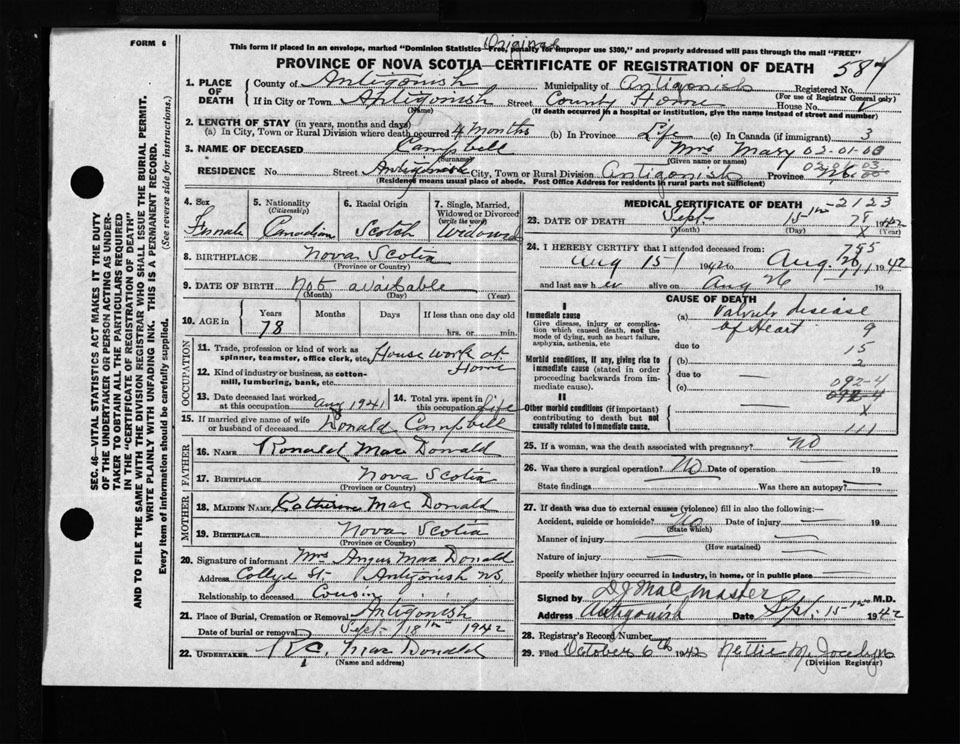 FORM 6
Original
This form if placed in an envelope, marked "Dominion Statistics—Free, penalty for improper use $300," and properly addressed will pass through the mail "FREE"
PROVINCE OF NOVA SCOTIA—CERTIFICATE OF REGISTRATION OF DEATH 587
1. PLACE OF DEATH County of Antigonish Municipality of Antigonish Registered No.
(For use of Registrar General only)
If in City or Town Antigonish Street County Home House No.
(Name) (If death occurred in a hospital or institution, give the name instead of street and number)
2. LENGTH OF STAY (in years, months and days)
(a) In City, Town or Rural Division where death occurred 4 months (b) In Province Life (c) In Canada (if immigrant) 3
3. NAME OF DECEASED Campbell Mrs Mary 02-01-03
(Surname) (Given name or names)
RESIDENCE No. Street Antigonish City, Town or Rural Division Antigonish Province
(Residence means usual place of abode. Post Office Address for residents in rural parts not sufficient)
4. Sex Female
5. Nationality (Citizenship) Canadian
6. Racial Origin Scotch
7. Single, Married, Widowed or Divorced (write the word) Widowed
8. BIRTHPLACE Nova Scotia
(Province or Country)
9. DATE OF BIRTH Not available
(Month) (Day) (Year)
10. AGE in Years Months Days If less than one day old
78 hrs. or min.
OCCUPATION
11. Trade, profession or kind of work as spinner, teamster, office clerk, etc. House work at Home
12. Kind of industry or business, as cotton-mill, lumbering, bank, etc.
13. Date deceased last worked at this occupation Aug 1941
14. Total yrs. spent in this occupation Life
15. If married give name of wife or husband of deceased Donald Campbell
FATHER
16. NAME Ronald MacDonald
17. BIRTHPLACE Nova Scotia
(Province or Country)
MOTHER
18. MAIDEN NAME Catherine MacDonald
19. BIRTHPLACE Nova Scotia
(Province or Country)
20. Signature of informant Mrs Angus MacDonald
Address College St. Antigonish NS
Relationship to deceased Cousin
21. Place of Burial, Cremation or Removal Antigonish
Date of burial or removal Sept 18th 1942
22. UNDERTAKER R.C. MacDonald
(Name and address)
MEDICAL CERTIFICATE OF DEATH 2123
23. DATE OF DEATH Sept 15th 78 1942
(Month) (Day) X (Year)
24. I HEREBY CERTIFY that I attended deceased from: 795
Aug 15 1942 to Aug. 26, 1942
and last saw her alive on Aug 26 19
CAUSE OF DEATH
I
Immediate cause
Give disease, injury or complication which caused death, not the mode of dying, such as heart failure, asphyxia, asthenia, etc
(a) Valvular disease of Heart 9
due to 15
Morbid conditions, if any, giving rise to immediate cause (stated in order proceeding backwards from immediate cause).
(b) 2
due to
(c) 092-4
092-4
II
Other morbid conditions (if important) contributing to death but not causally related to immediate cause.
X
111
25. If a woman, was the death associated with pregnancy? No
26. Was there a surgical operation? No Date of operation 19
State findings Was there an autopsy?
27. If death was due to external causes (violence) fill in also the following:—
Accident, suicide or homicide? No Date of injury 19
(State which)
Manner of injury
(How sustained)
Nature of injury
Specify whether injury occurred in industry, in home, or in public place
Signed by D J MacMaster M.D.
Address Antigonish Date Sept. 15th 1942
28. Registrar's Record Number
29. Filed October 6th 1942 Nettie M. Jocelyn
(Division Registrar)
SEC. 46—VITAL STATISTICS ACT MAKES IT THE DUTY
OF THE UNDERTAKER OR PERSON ACTING AS UNDER-
TAKER TO OBTAIN ALL THE PARTICULARS REQUIRED
IN THE "CERTIFICATE OF REGISTRATION OF DEATH"
AND TO FILE THE SAME WITH THE DIVISION REGISTRAR WHO SHALL ISSUE THE BURIAL PERMIT.
WRITE PLAINLY WITH UNFADING INK. THIS IS A PERMANENT RECORD.
Every item of information should be carefully supplied. (See reverse side for instructions.)